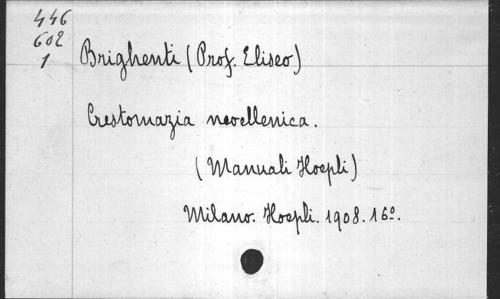 446
602
1
Brighenti (Prof. Eliseo)
Crestomazia neoellenica.
(Manuali Hoepli)
Milano. Hoepli. 1908. 16º.